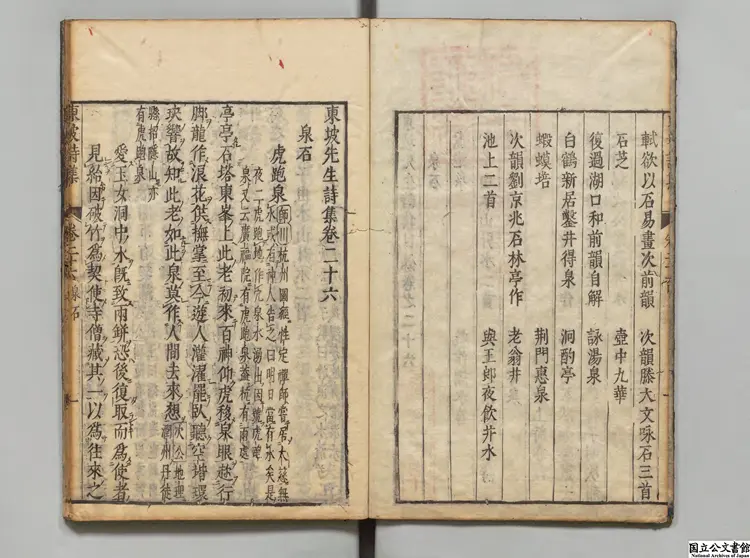 軾欲以石易畫次前韻 次韻滕大夫咏石三首
石芝 壺中九華
復過湖口和前韻自解 詠湯泉
白鶴新居鑿井得泉 洞酌亭
蝦蟆培 荆門惠泉
次韻劉京兆石林亭作 老翁井
池上二首 與王郎夜飲井水
東坡先生詩集卷二十六
泉石
虎跑泉
亭亭石塔東峯上此老初來百神仰虎移泉眼趂行
脚龍作浪花供撫掌至今遊人灌濯罷臥聽空堦環
玦響故知此老如此泉莫作人間去來想
有虎跑泉
愛玉女洞中水旣致兩缾恐後復取而爲使者
見紿因破竹爲契使寺僧藏其一以爲往來之
東坡詩集
泉石
国立公文書館
National Archives of Japan